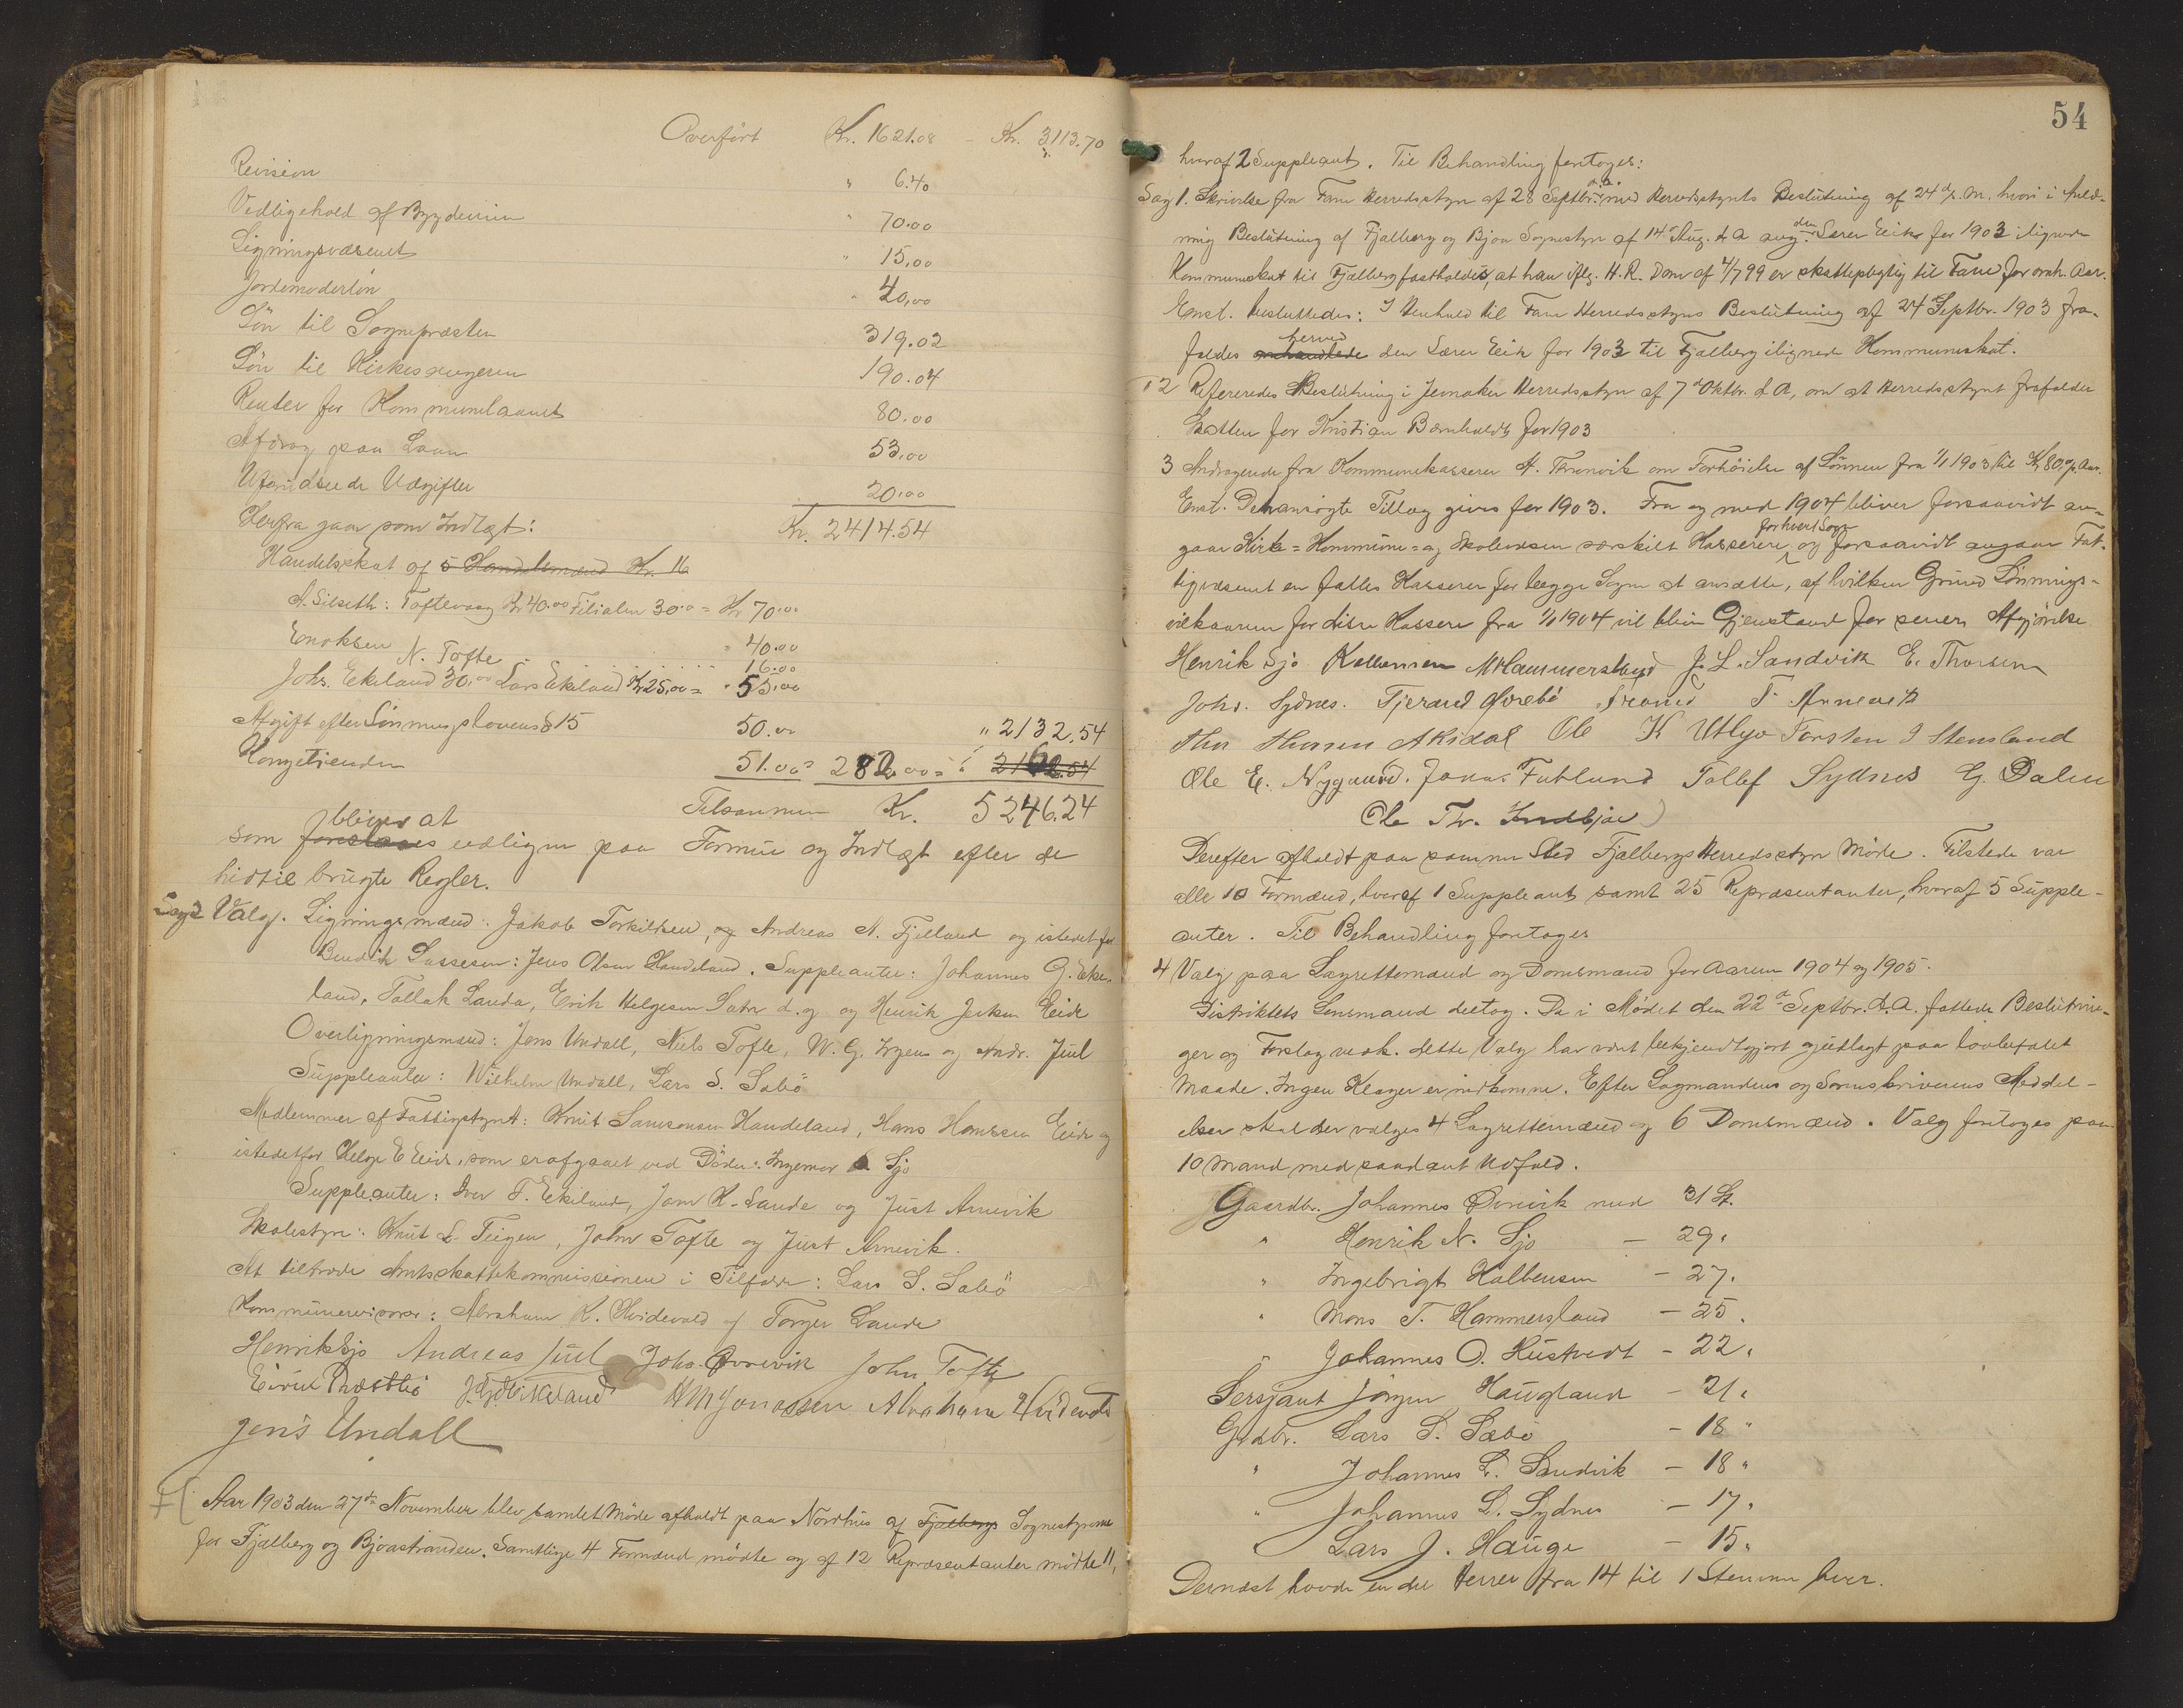 Overført Kr. 1621.08 - Kr. 3113.70
Revision " 6.40
Vedligehold af Bygderum " 70.00
Ligningsvæsenet " 15,00
Jordemoderløn " 40,00
Løn til Sognepræsten 319.02
Løn til Kirkesangeren 190.04
Renter for Kommunelaanet 80.00
Afdrag paa Laan 53,00
Uforudseede Udgifter 20,00
Herfra gaar som Indtægt: Kr. 2414.54
Handelsskat af 5 Handelsmænd Kr. 16
A. Silseth: Toftevaag Kr 40.00 Filialen 30.00 = Kr 70.00
Enoksen " 40.00
N. Tofte 16.00
Johs. Ekeland 30,00 Lars Ekeland Kr 25,00 = " 55,00
Afgift efter Lønningslovens § 15 50.00 " 2132,54
Kongetienden 51.00 = 282,00 = " 2162.54
Tilsammen Kr. 5246.24
bliver at
som foreslaaes udligne paa Formue og Indtægt efter de
hidtil brugte Regler.
Sag 2 Valg. Ligningsmænd: Jakob Torkildsen, og Andreas A. Fjelland og istedetfor
Bendik Lassesen: Jens Olsen Handeland. Suppleanter: Johannes G. Eke-
land, Tollak Landa, Erik Helgesen Sæbø d.y. og Henrik Eide
Overligningsmænd: Jens Undall, Niels Tofte, W. G. Irgens og Andr. Juul
Suppleanter: Wilhelm Undall, Lars S. Sæbø
Medlemmer af Fattigstyret: Knut Samsonsen Handeland, Hans Hanssen Eide og
istedetfor Helge E Eide, som er afgaaet ved Døden: Ingemar Sjo
Suppleanter: Iver T. Ekeland, Jon K. Sande og Just Arnevik
Skolestyre: Knut L. Teigen, John Tofte og Just Arnevik.
At tiltræde Amtsskattekommissionen i Tilfælde: Lars S. Sæbø
Kommunerevisorer: Abraham K. Hvidevold og Torger Lande
Henrik Sjo Andreas Juul Johs. Øvrevik John Tofte
Eivin Præstbø H M Jonassen Abraham Hvidevold
Jens Undall
Aar 1903 den 27de November blev samlet Møde afholdt paa Nordhus af Fjælbergs Sognestyrerne
for Fjælberg og Bjoastranden. Samtlige 4 Formænd mødte og af 12 Repræsentanter mødte 11,
54
hvoraf 2 Suppleant. Til Behandling foretoges:
Sag 1. Skrivelse fra Fane Herredsstyre af 28 Septbr. d.a. med Herredsstyrets Beslutning af 24 ds. M. hvori i Anled-
ning Beslutning af Fjælberg og Bjoa Sognestyre af 14 Aug. d A ang. den Lærer Eike for 1903 ilignede
Kommuneskat til Fjælberg fastholdes, at han iflg. H. R. Dom af 4/7 99 er skattepligtig til Fane for omh. Aar.
Enst. besluttedes: I Henhold til Fane Herredsstyres Beslutning af 24 Septbr. 1903 fra-
herved
faldes den Lærer Eik for 1903 til Fjælberg ilignede Kommuneskat.
" 2 Refereredes Beslutning i Jevnaker Herredsstyre af 7de Oktbr. d A, om at Herredsstyret frafalder
Skatten for Kristian Bærnholdt for 1903
3 Andragende fra Kommunekasserer A. Thronvik om Forhøielse af Lønnen fra 1/1 1903 til Kr 80,00 p. Aar.
Enst. Det ansøgte Tillæg gives for 1903. Fra og med 1904 bliver forsaavidt an-
for hvert Sogn
gaar Kirke- Kommune- og Skolevæsen særskilt Kasserere, og forsaavidt angaar Fat-
tigvæsenet en fælles Kasserer for begge Sogne at ansætte, af hvilken Grund Lønnings-
vilkaarene for disse Kasserere fra 1/1 1904 vil blive Gjenstand for senere Afgjørelse
Henrik Sjo Kolbensen M Hammersland J. L. Sandvik E. Thorsen
Johs. Sydnes. Tjerand Ørebø Trond T. Arnevik
Thor Thorsen Aksdal Ole K Utbjo Torsten I Stensland
Ole E. Nygaard. Jonas Fuhlund Tollef Sydnes G. Dalen
Ole Th. Indbjoe
Derefter afholdt paa samme Sted Fjælbergs Herredsstyre Møde. Tilstede var
alle 10 Formænd, hvoraf 1 Suppleant samt 25 Repræsentanter, hvoraf 5 Supple-
anter. Til Behandling foretoges
4 Valg paa Lagrettemænd og Domsmænd for Aarene 1904 og 1905.
Distriktets Lensmand deltog. De i Mødet den 22de Septbr. d. A. fattede Beslutnin-
ger og Forslag vedk. dette Valg har været bekjendtgjort og udlagt paa lovbefalet
Maade. Ingen Klager er indkomne. Efter Lagmandens og Sorenskriverens Meddel-
elser skal der vælges 4 Lagrettemænd og 6 Domsmænd. Valg foretoges paa
10 Mand med saadant Udfald.
Gaardbr. Johannes Øvrevik med 31 St.
" Henrik N. Sjo - 29 "
" Ingebrigt Kolbensen - 27 "
" Mons T. Hammersland - 25 "
" Johannes O. Hustvedt - 22 "
Sersjant Jørgen Haugland - 21 "
Grdbr. Lars S. Sæbø - 18 "
" Johannes L. Sandvik - 18 "
" Johannes L. Sydnes - 17 "
" Lars J. Hauge - 15 "
Dernæst havde en del Herrer fra 14 til 1 Stemme hver.